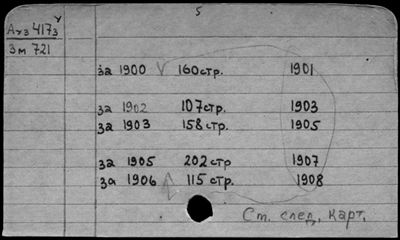 5
Ауз 4173
Зм 721
за 1900 160 стр. 1901
за 1902 107 стр. 1903
за 1903 158 стр. 1905
за 1905 202 стр 1907
за 1906 115 стр. 1908
Ст. след. карт.